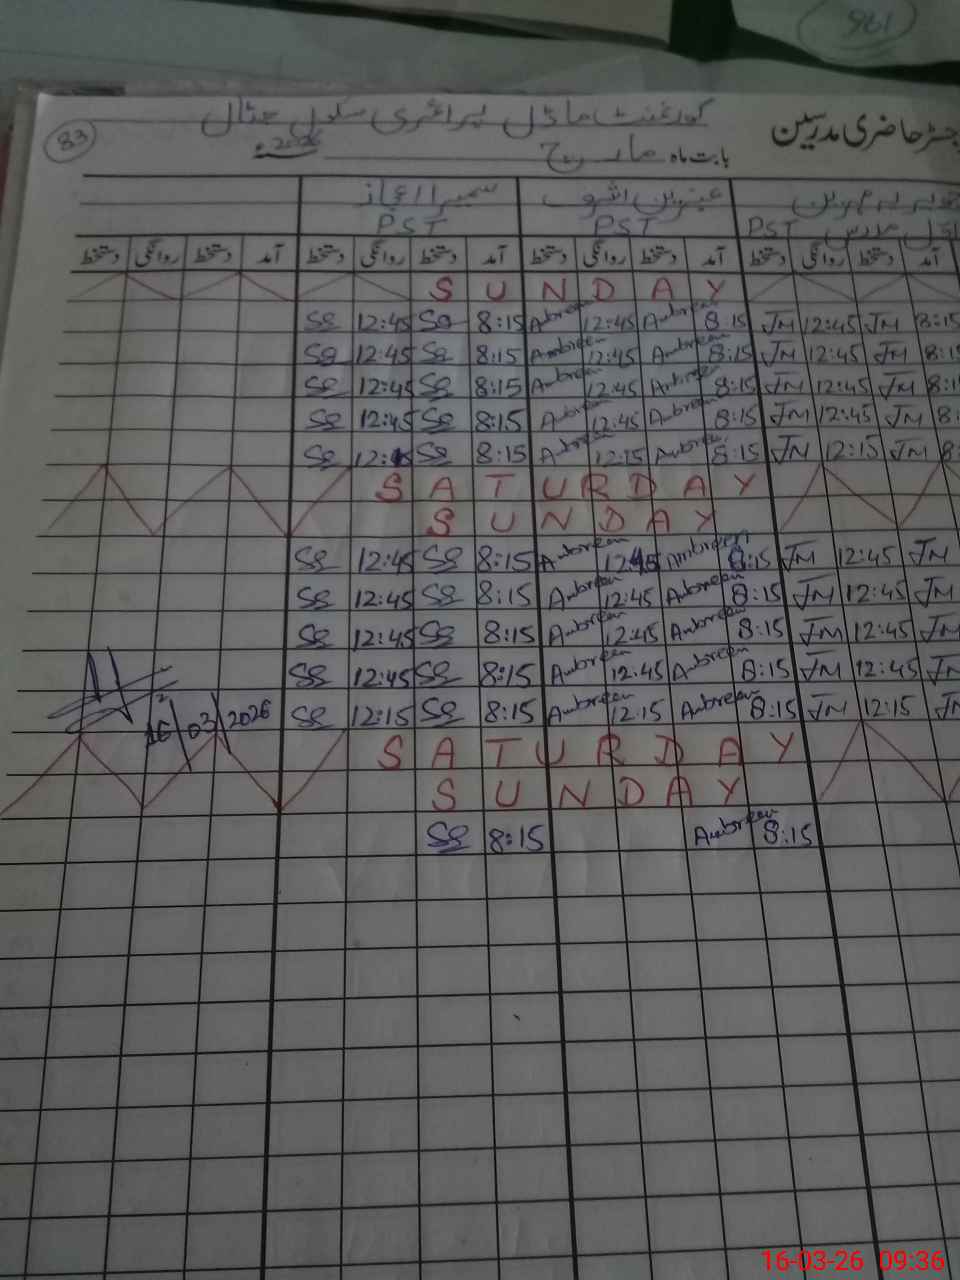 196
83
گورنمنٹ ماڈل پرائمری سکول جٹال
جسٹر حاضری مدرسین
بابت ماہ مارچ 2026ء
عنبرین اشرف سمیرا اعجاز
PST PST PST
دستخط روانگی دستخط آمد دستخط روانگی دستخط آمد دستخط روانگی دستخط آمد دستخط روانگی دستخط آمد
SUNDAY
SS 12:45 SS 8:15 Ambreen 12:45 Ambreen 8:15 JM 12:45 JM 8:15
SS 12:45 SS 8:15 Ambreen 12:45 Ambreen 8:15 JM 12:45 JM 8:15
SS 12:45 SS 8:15 Ambreen 12:45 Ambreen 8:15 JM 12:45 JM 8:1
SS 12:45 SS 8:15 Ambreen 12:45 Ambreen 8:15 JM 12:45 JM 8:
SS 12:15 SS 8:15 Ambreen 12:15 Ambreen 8:15 JM 12:15 JM 8:
SATURDAY
SUNDAY
SS 12:45 SS 8:15 Ambreen 12:45 Ambreen 8:15 JM 12:45 JM
SS 12:45 SS 8:15 Ambreen 12:45 Ambreen 8:15 JM 12:45 JM
SS 12:45 SS 8:15 Ambreen 12:45 Ambreen 8:15 JM 12:45 JM
SS 12:45 SS 8:15 Ambreen 12:45 Ambreen 8:15 JM 12:45 JM
16/03/2026 SS 12:15 SS 8:15 Ambreen 12:15 Ambreen 8:15 JM 12:15 JM
SATURDAY
SUNDAY
SS 8:15 Ambreen 8:15
16-03-26 09:36